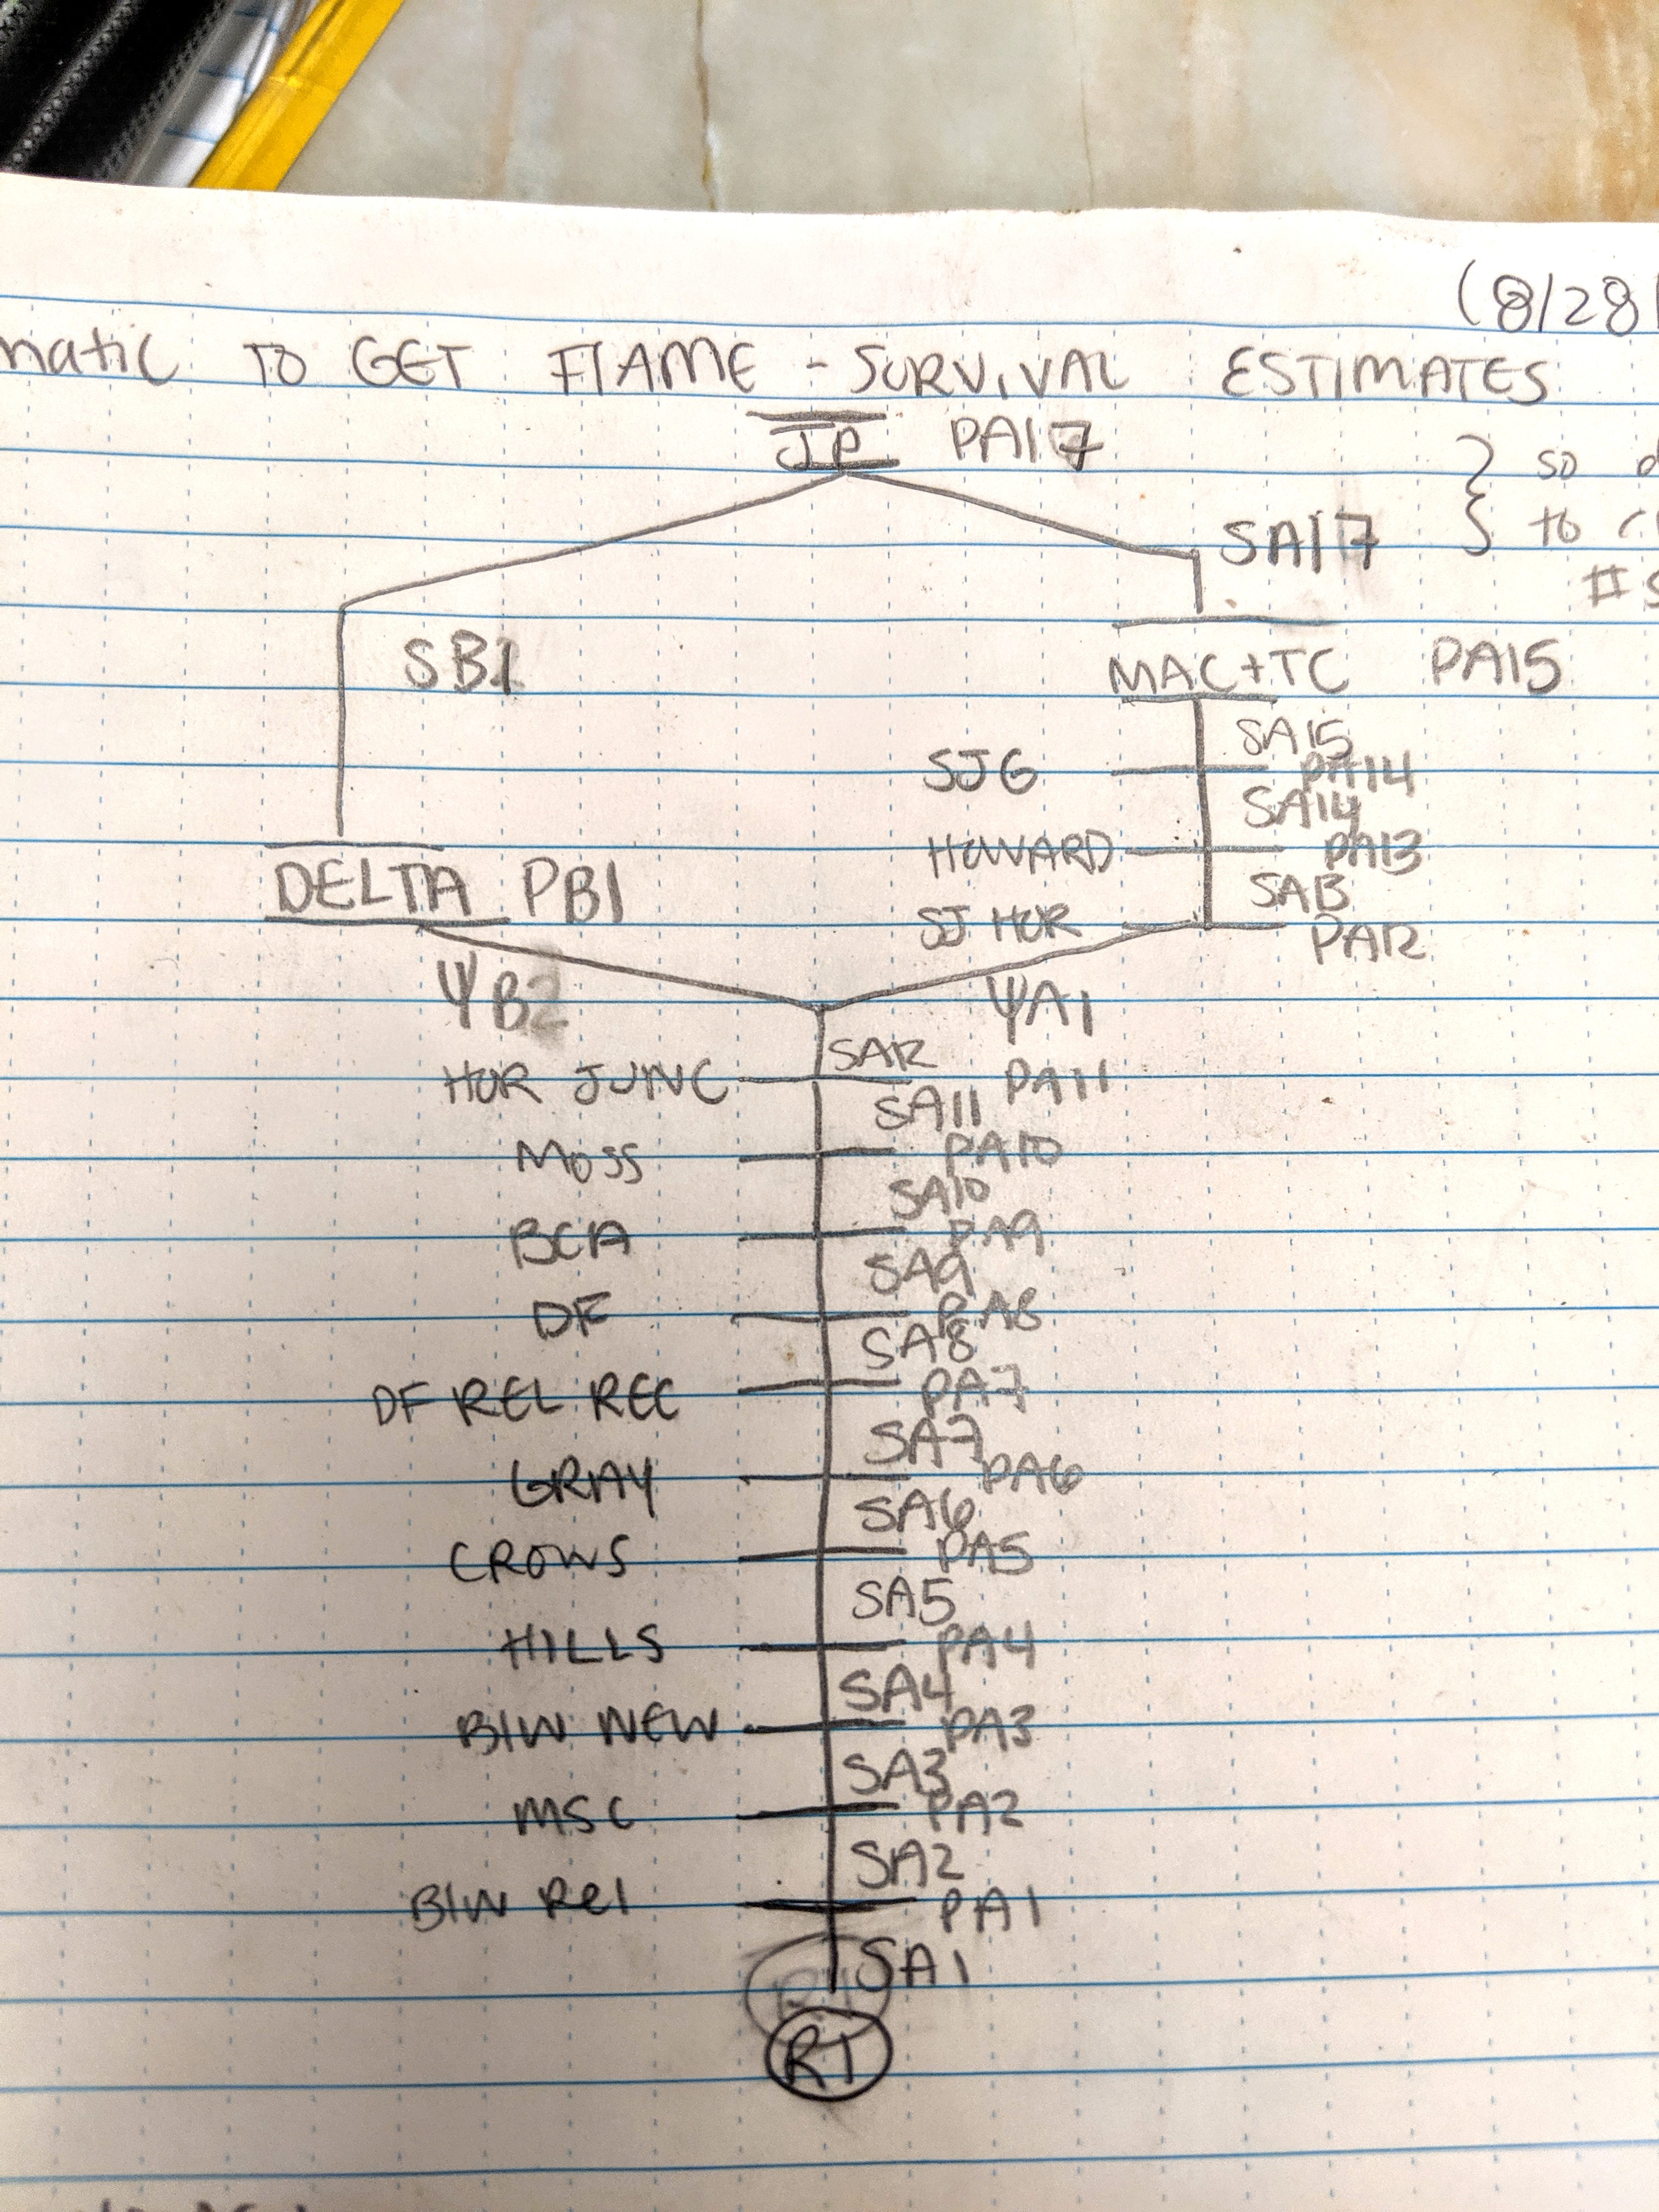 (8/28/
matic TO GET FIAME - SURVIVAL ESTIMATES
JP PA17
} so
SA17 } to
#
SB1
MAC+TC PA15
SA15
SJG PA14
SA14
HOWARD PA13
DELTA PB1 SA13
SJ HOR PA12
ΨB2 ΨA1
SA12
HOR JUNC PA11
SA11
MOSS PA10
SA10
BCA PA9
SA9
DF PA8
SA8
DF REL REC PA7
SA7
GRAY PA6
SA6
CROWS PA5
SA5
HILLS PA4
SA4
BlW NEW PA3
SA3
MSC PA2
SA2
BlW Rel PA1
SA1
R1